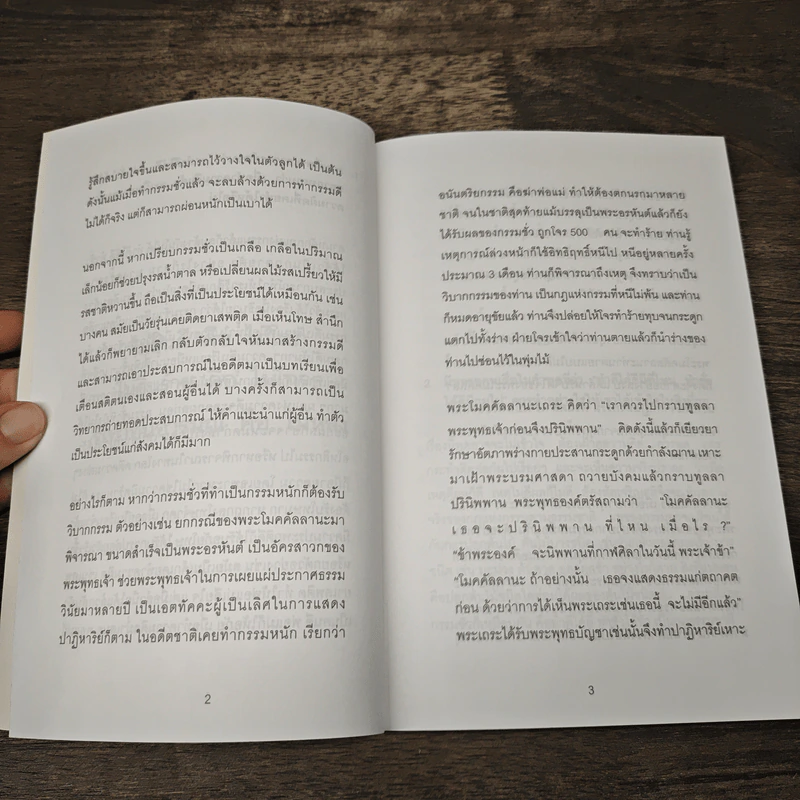 รู้สึกสบายใจขึ้นและสามารถไว้วางใจในตัวลูกได้ เป็นต้น
ดังนั้นแม้เมื่อทำกรรมชั่วแล้ว จะลบล้างด้วยการทำกรรมดี
ไม่ได้ก็จริง แต่ก็สามารถผ่อนหนักเป็นเบาได้
นอกจากนี้ หากเปรียบกรรมชั่วเป็นเกลือ เกลือในปริมาณ
เล็กน้อยก็ช่วยปรุงรสน้ำตาล หรือเปลี่ยนผลไม้รสเปรี้ยวให้มี
รสชาติหวานขึ้น ถือเป็นสิ่งที่เป็นประโยชน์ได้เหมือนกัน เช่น
บางคน สมัยเป็นวัยรุ่นเคยติดยาเสพติด เมื่อเห็นโทษ สำนึก
ได้แล้วก็พยายามเลิก กลับตัวกลับใจหันมาสร้างกรรมดี
และสามารถเอาประสบการณ์ในอดีตมาเป็นบทเรียนเพื่อ
เตือนสติตนเองและสอนผู้อื่นได้ บางครั้งก็สามารถเป็น
วิทยากรถ่ายทอดประสบการณ์ ให้คำแนะนำแก่ผู้อื่น ทำตัว
เป็นประโยชน์แก่สังคมได้ก็มีมาก
อย่างไรก็ตาม หากว่ากรรมชั่วที่ทำเป็นกรรมหนักก็ต้องรับ
วิบากกรรม ตัวอย่างเช่น ยกกรณีของพระโมคคัลลานะมา
พิจารณา ขนาดสำเร็จเป็นพระอรหันต์ เป็นอัครสาวกของ
พระพุทธเจ้า ช่วยพระพุทธเจ้าในการเผยแผ่ประกาศธรรม
วินัยมาหลายปี เป็นเอตทัคคะผู้เป็นเลิศในการแสดง
ปาฏิหาริย์ก็ตาม ในอดีตชาติเคยทำกรรมหนัก เรียกว่า
2
อนันตริยกรรม คือฆ่าพ่อแม่ ทำให้ต้องตกนรกมาหลาย
ชาติ จนในชาติสุดท้ายแม้บรรลุเป็นพระอรหันต์แล้วก็ยัง
ได้รับผลของกรรมชั่ว ถูกโจร 500 คน จะทำร้าย ท่านรู้
เหตุการณ์ล่วงหน้าก็ใช้อิทธิฤทธิ์หนีไป หนีอยู่หลายครั้ง
ประมาณ 3 เดือน ท่านก็พิจารณาถึงเหตุ จึงทราบว่าเป็น
วิบากกรรมของท่าน เป็นกฎแห่งกรรมที่หนีไม่พ้น และท่าน
ก็หมดอายุขัยแล้ว ท่านจึงปล่อยให้โจรทำร้ายทุบจนกระดูก
แตกไปทั้งร่าง ฝ่ายโจรเข้าใจว่าท่านตายแล้วก็นำร่างของ
ท่านไปซ่อนไว้ในพุ่มไม้
พระโมคคัลลานะเถระ คิดว่า "เราควรไปกราบทูลลา
พระพุทธเจ้าก่อนจึงปรินิพพาน" คิดดังนี้แล้วก็เยียวยา
รักษาอัตภาพร่างกายประสานกระดูกด้วยกำลังฌาน เหาะ
มาเฝ้าพระบรมศาสดา ถวายบังคมแล้วกราบทูลลา
ปรินิพพาน พระพุทธองค์ตรัสถามว่า "โมคคัลลานะ
เธอจะปรินิพพาน ที่ไหน เมื่อไร ?"
"ข้าพระองค์ จะนิพพานที่กาฬศิลาในวันนี้ พระเจ้าข้า"
"โมคคัลลานะ ถ้าอย่างนั้น เธอจงแสดงธรรมแก่ตถาคต
ก่อน ด้วยว่าการได้เห็นพระเถระเช่นเธอนี้ จะไม่มีอีกแล้ว"
พระเถระได้รับพระพุทธบัญชาเช่นนั้นจึงทำปาฏิหาริย์เหาะ
3